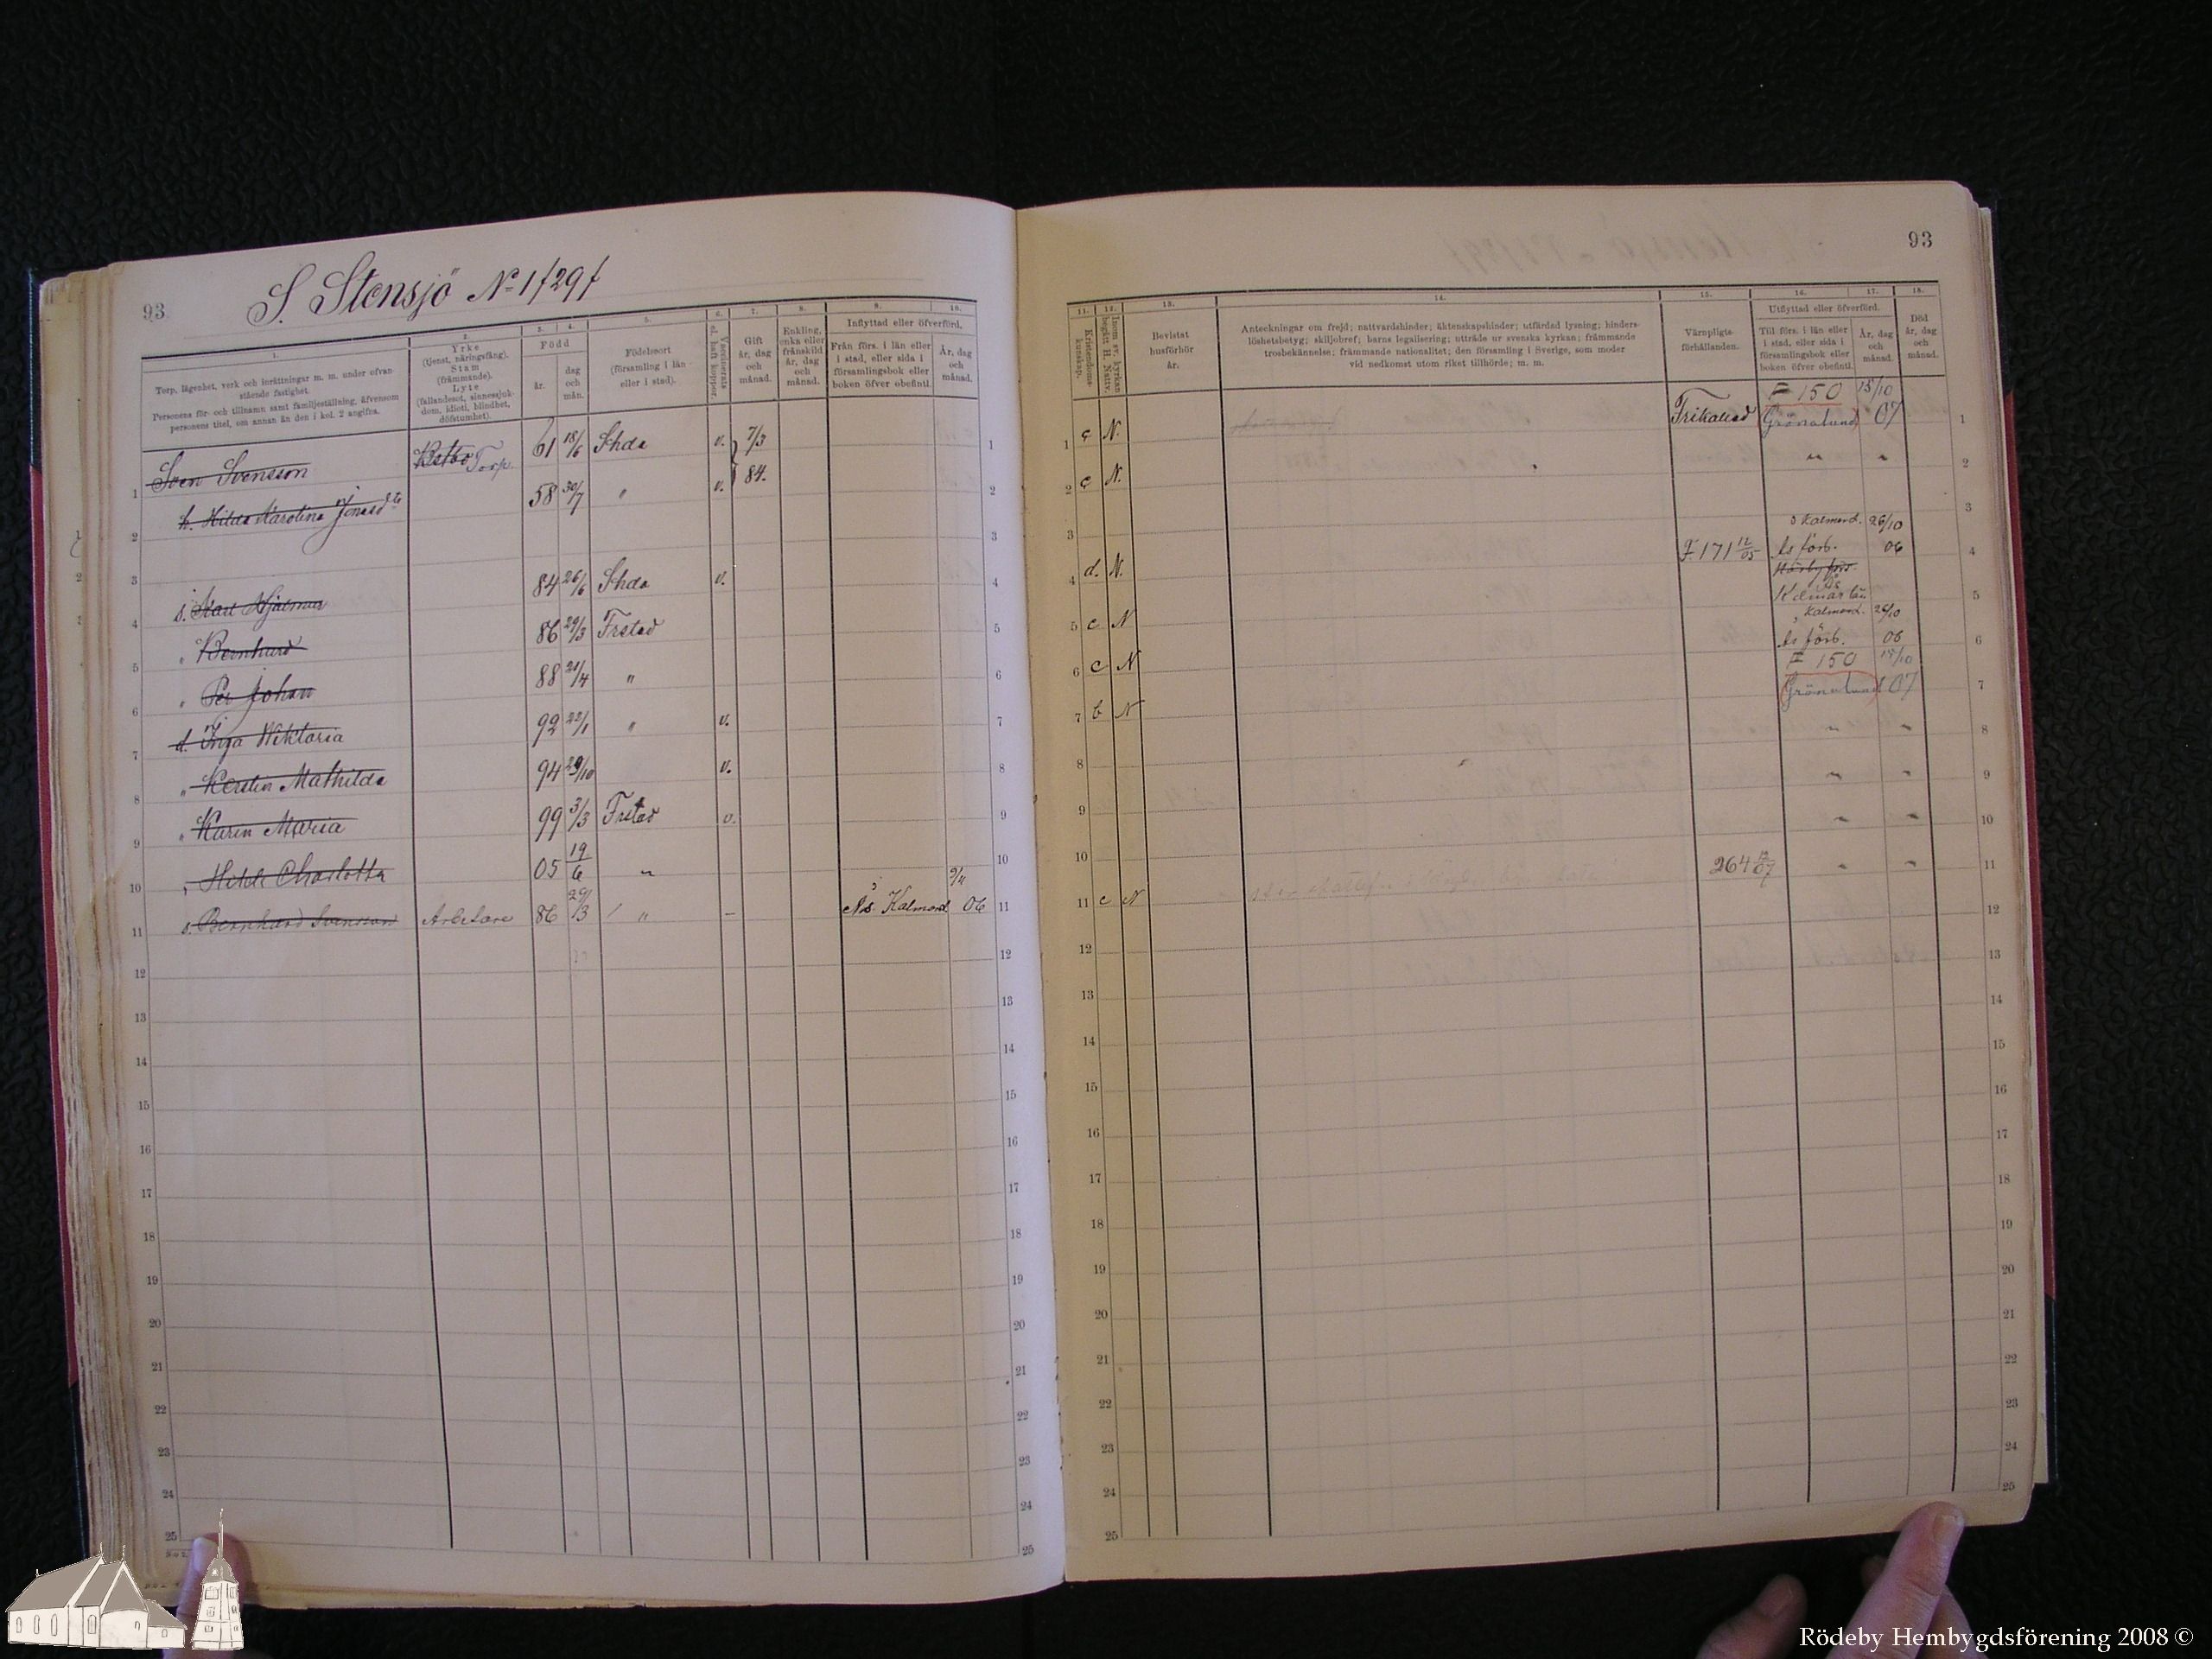 93
S. Stensjö No 1/29/
1.
Torp, lägenhet, verk och inrättningar m. m. under ofvanstående fastighet.
Personens för- och tillnamn samt familjeställning, äfvensom
personens titel, om annan än den i kol. 2 angifna.
2.
Yrke
(tjenst, näringsfång).
Stam
(främmande).
Lyte
(fallandesot, sinnessjukdom, idioti, blindhet,
döfstumhet).
3. 4.
Född
år. dag och mån.
5.
Födelseort
(församling i län
eller i stad).
6.
Vaccinerats
el. haft koppor.
7.
Gift
år, dag
och
månad.
8.
Enkling,
enka eller
frånskild
år, dag
och
månad.
9. 10.
Inflyttad eller öfverförd.
Från förs. i län eller
i stad, eller sida i
församlingsbok eller
boken öfver obefintl.
År, dag
och
månad.
1 Sven Svensson Torp. 61 18/6 Schda v. 7/3 1
2 h. Hilda Karolina Jonasd:r 58 30/7 " v. 84. 2
3 3
4 s. Karl Hjalmar 84 26/6 Schda v. 4
5 " Bernhard 86 29/3 Frstad 5
6 " Per Johan 88 21/4 " 6
7 d. Inga Wiktoria 92 22/1 " v. 7
8 " Kerstin Mathilda 94 29/10 v. 8
9 " Karin Maria 99 3/3 Frstad v. 9
10 " Hilda Charlotta 05 19/6 " 10
11 s. Bernhard Svensson Arbetare 86 29/3 " – Kalmar 9/4 06 11
12 12
13 13
14 14
15 15
16 16
17 17
18 18
19 19
20 20
21 21
22 22
23 23
24 24
25 25
93
11.
Kristendomskunskap.
12.
Inom sv. kyrkan
begått H. Nattv.
13.
Bevistat
husförhör
år.
14.
Anteckningar om frejd; nattvardshinder; äktenskapshinder; utfärdad lysning; hinderslöshetsbetyg; skiljobref; barns legalisering; utträde ur svenska kyrkan; främmande
trosbekännelse; främmande nationalitet; den församling i Sverige, som moder
vid nedkomst utom riket tillhörde; m. m.
15.
Värnpligtsförhållanden.
16. 17.
Utflyttad eller öfverförd.
Till förs. i län eller
i stad, eller sida i
församlingsbok eller
boken öfver obefintl.
År, dag
och
månad.
18.
Död
år, dag
och
månad.
1 c N. Frikallad F 150 Grönalund 15/10 07 1
2 c N. " " 2
3 3
4 d. N. F 171 12/05 förb. 26/10 06 4
5 c N 26/10 06 5
6 c N F 150 Grönalund 15/10 07 6
7 b N " " 7
8 " " 8
9 " " 9
10 264 12/07 " " 10
11 c N 11
12 12
13 13
14 14
15 15
16 16
17 17
18 18
19 19
20 20
21 21
22 22
23 23
24 24
25 25
Rödeby Hembygdsförening 2008 ©